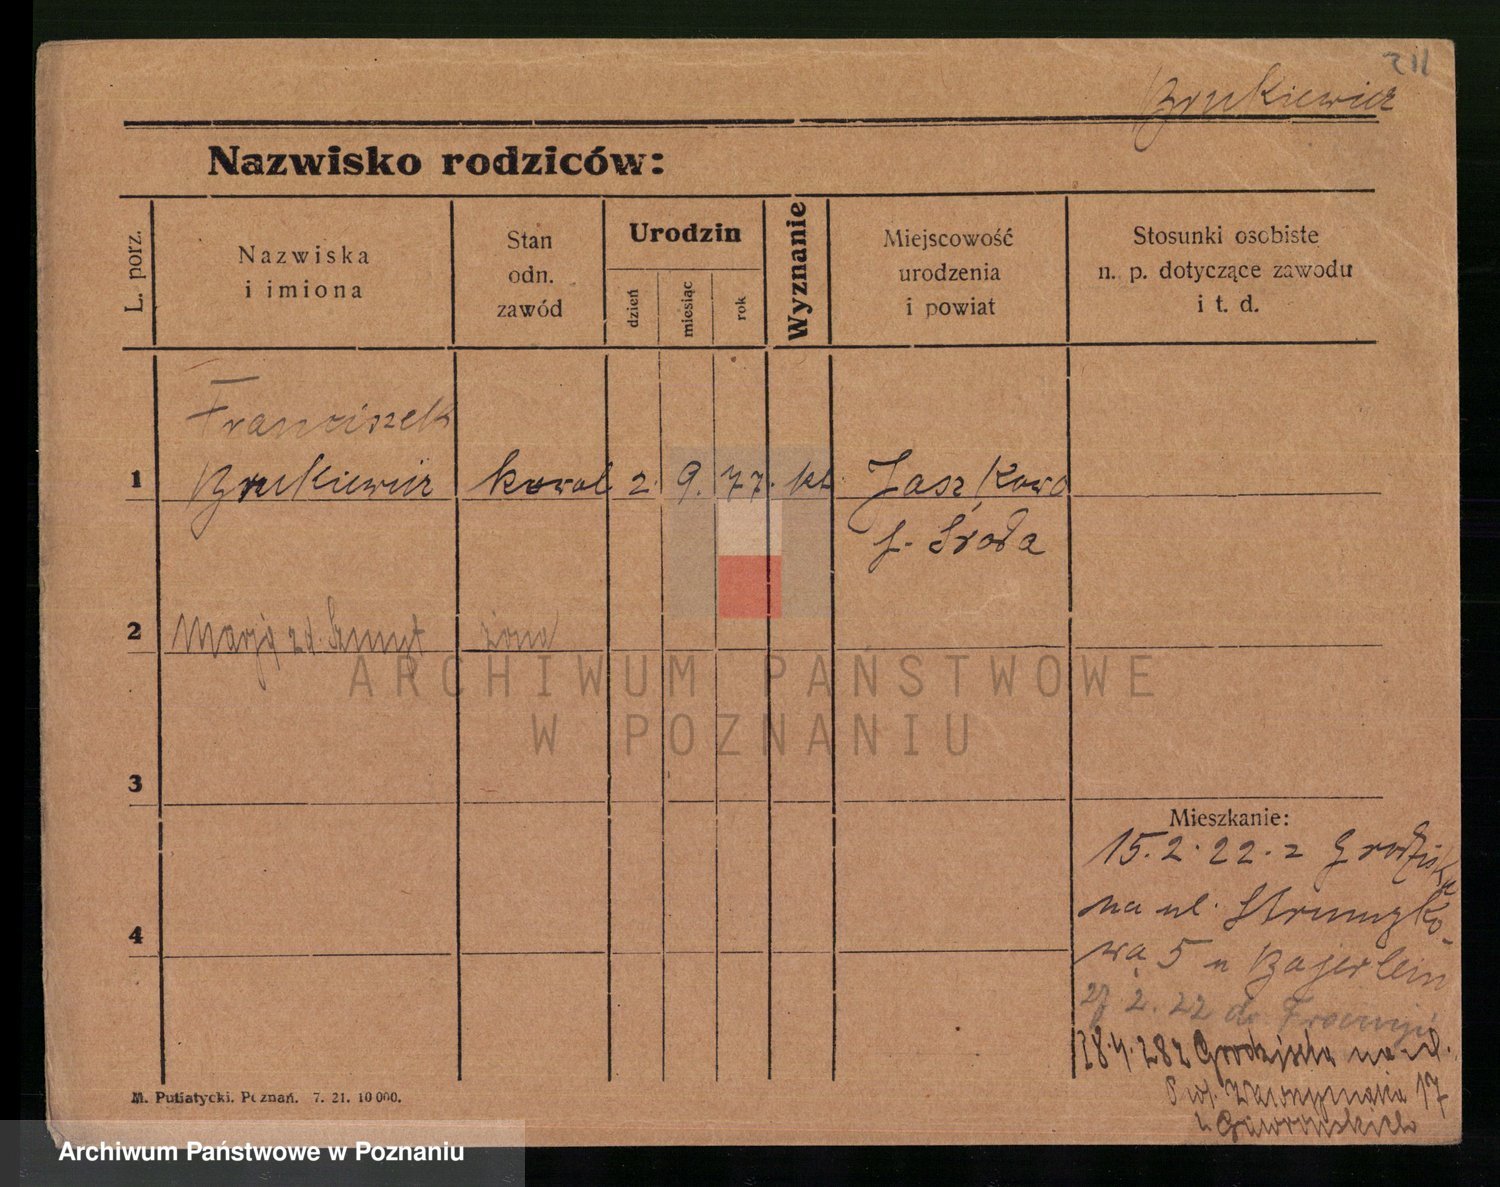 211
Brukiewicz
Nazwisko rodziców:
L. porz.
Nazwiska
i imiona
Stan
odn.
zawód
Urodzin
dzień
miesiąc
rok
Wyznanie
Miejscowość
urodzenia
i powiat
Stosunki osobiste
n. p. dotyczące zawodu
i t. d.
Franciszek
1 Brukiewicz kowal 2. 9. 77. kt. Jaszkowo
p. Środa
2 Marja zd. Szmyt żona
3
4
Mieszkanie:
15.2.22. z Grodziska
na ul. Strumyko-
wą 5 u Bajerlein
27 2. 22 do Francyi
28.4.28 z Grodziska na ul.
17
u Gaworońskich
M. Putiatycki. Poznań. 7. 21. 10 000.
ARCHIWUM PAŃSTWOWE
W POZNANIU
Archiwum Państwowe w Poznaniu